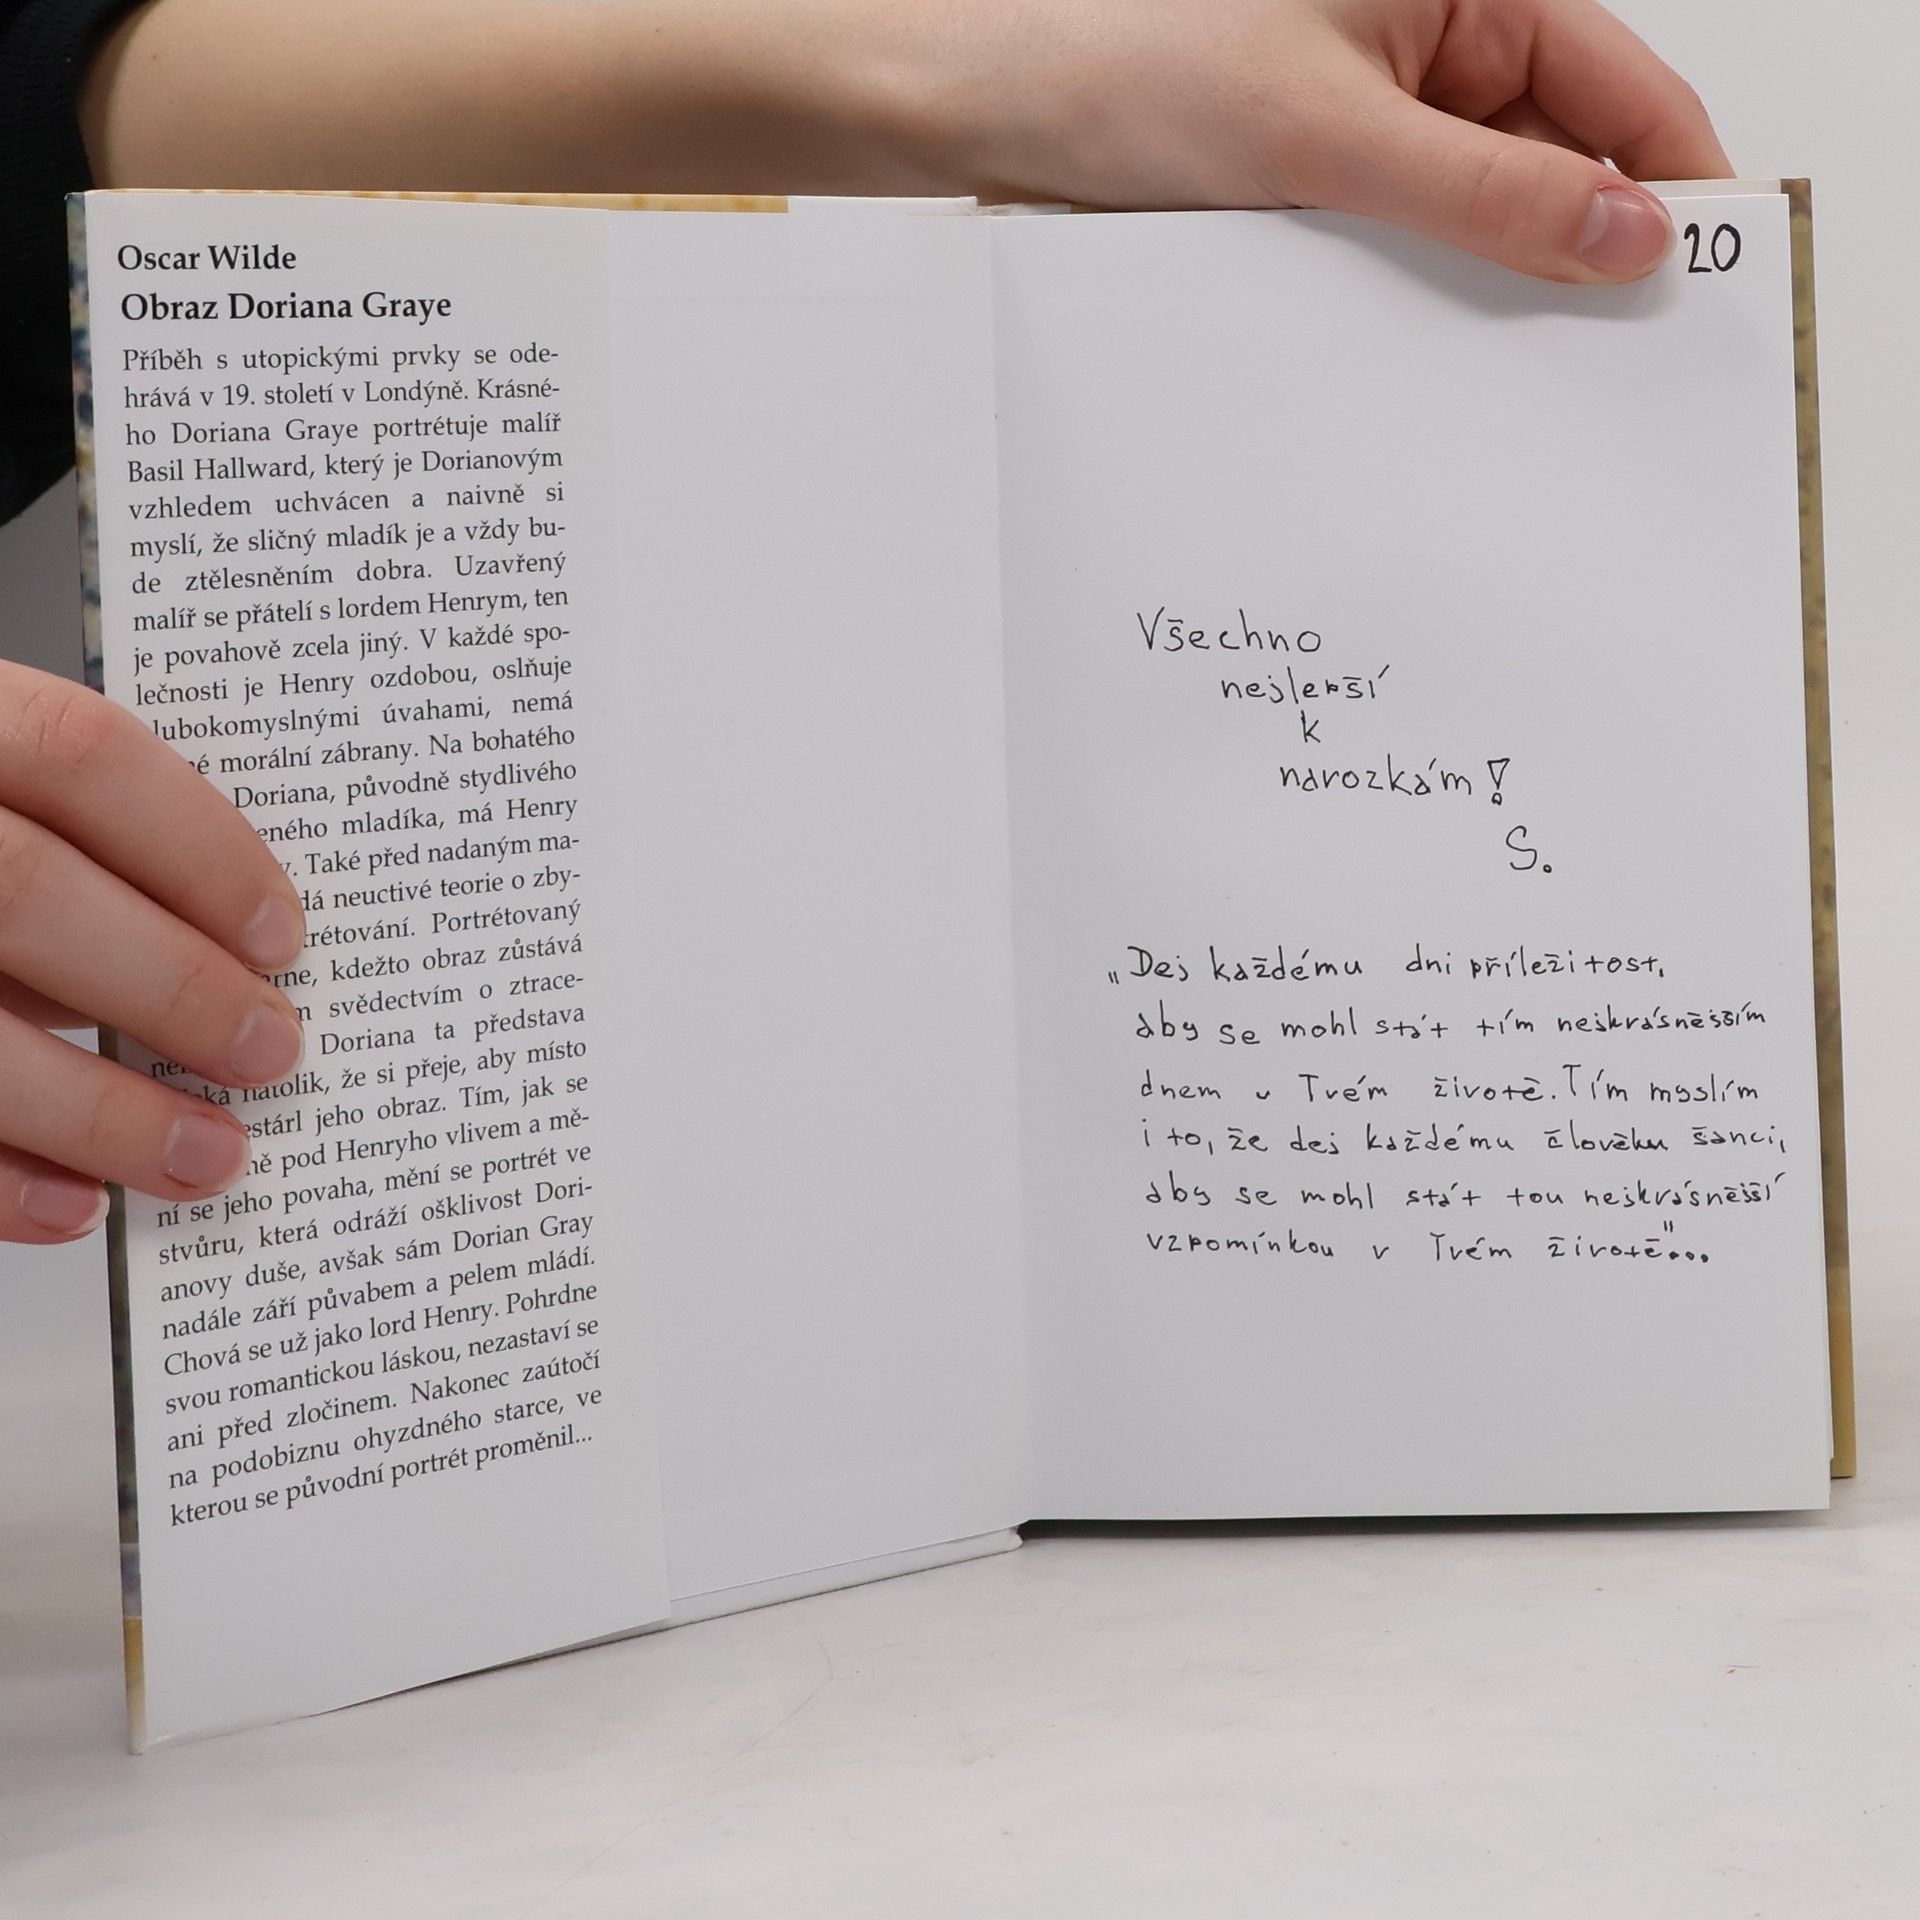 Oscar Wilde
Obraz Doriana Graye
Příběh s utopickými prvky se ode-
hrává v 19. století v Londýně. Krásné-
ho Doriana Graye portrétuje malíř
Basil Hallward, který je Dorianovým
vzhledem uchvácen a naivně si
myslí, že sličný mladík je a vždy bu-
de ztělesněním dobra. Uzavřený
malíř se přátelí s lordem Henrym, ten
je povahově zcela jiný. V každé spo-
lečnosti je Henry ozdobou, oslňuje
lubokomyslnými úvahami, nemá
morální zábrany. Na bohatého
Doriana, původně stydlivého
mladíka, má Henry
Také před nadaným ma-
neuctivé teorie o zby-
Portrétovaný
kdežto obraz zůstává
svědectvím o ztrace-
Doriana ta představa
natolik, že si přeje, aby místo
jeho obraz. Tím, jak se
pod Henryho vlivem a mě-
ní se jeho povaha, mění se portrét ve
stvůru, která odráží ošklivost Dori-
anovy duše, avšak sám Dorian Gray
nadále září půvabem a pelem mládí.
Chová se už jako lord Henry. Pohrdne
svou romantickou láskou, nezastaví se
ani před zločinem. Nakonec zaútočí
na podobiznu ohyzdného starce, ve
kterou se původní portrét proměnil...
20
Všechno
nejlepší
k
narozkám!
S.
„Dej každému dni příležitost,
aby se mohl stát tím nejkrásnějším
dnem v Tvém životě. Tím myslím
i to, že dej každému člověku šanci,
aby se mohl stát tou nejkrásnější
vzpomínkou v Tvém životě"...